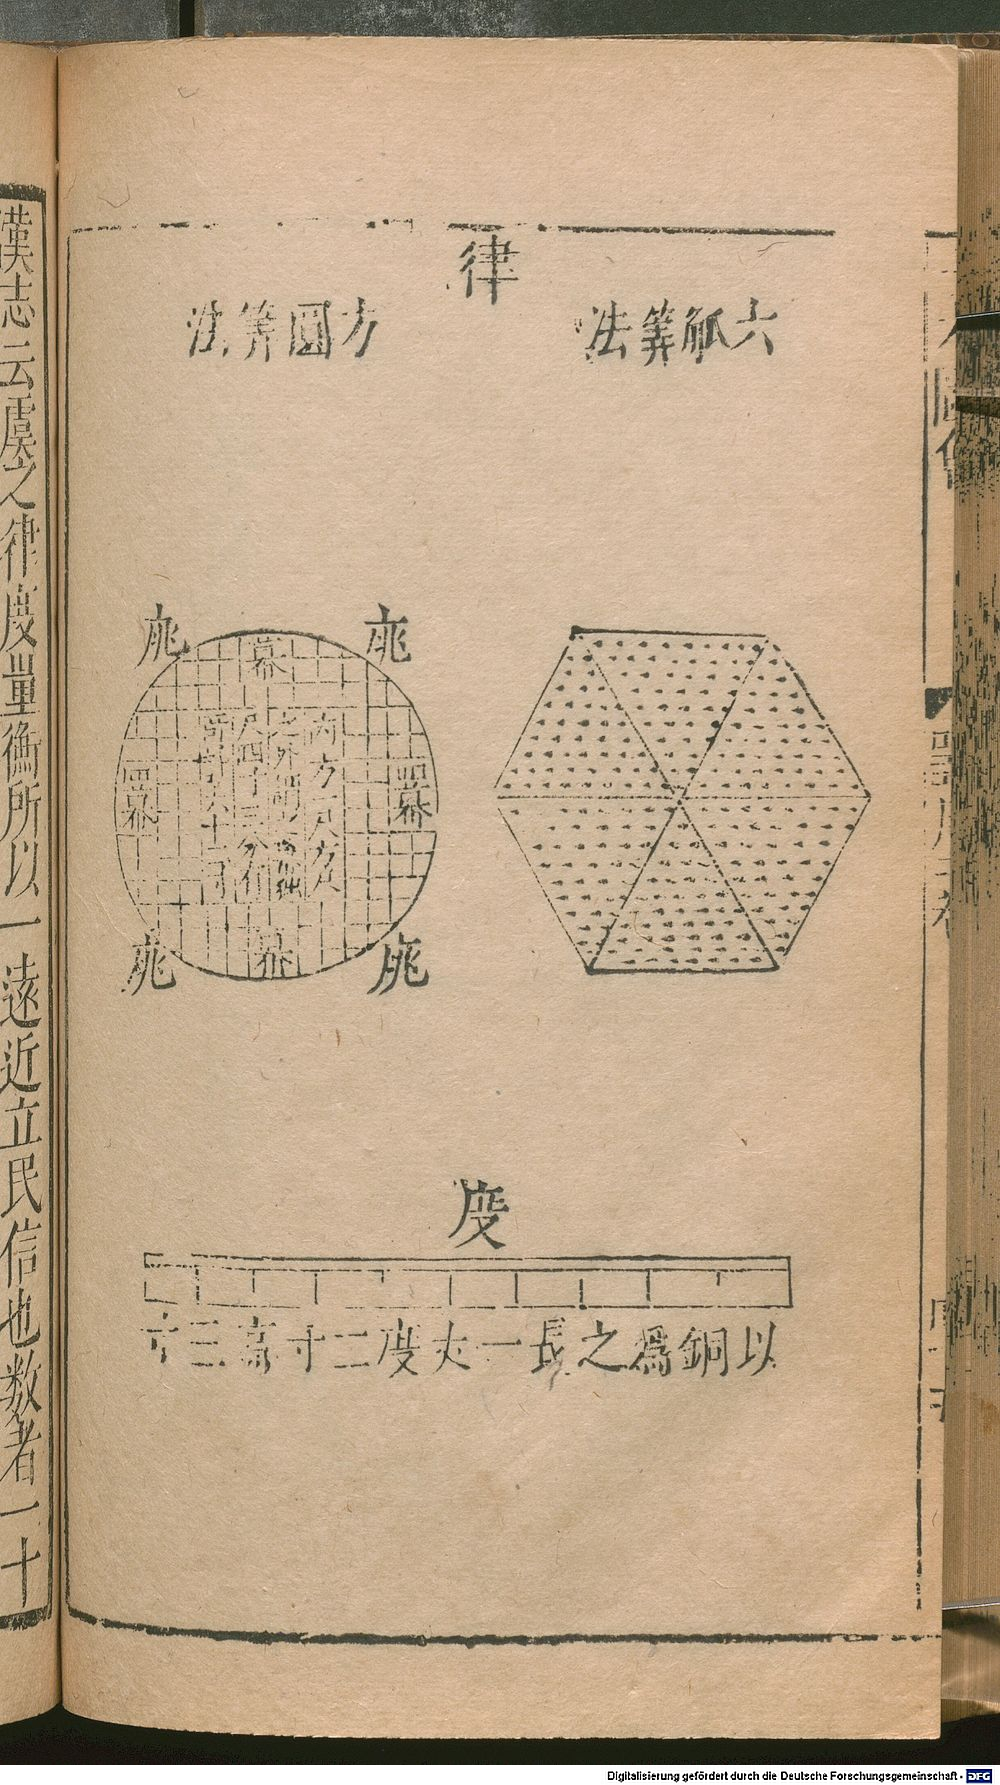 律
六觚筭法
方圓筭法
庣
庣
冪
冪
冪
冪
庣
庣
度
以銅爲之長一丈度二寸高三寸
漢志云虞之律度量衡所以一遠近立民信也数者一十
Digitalisierung gefördert durch die Deutsche Forschungsgemeinschaft - DFG